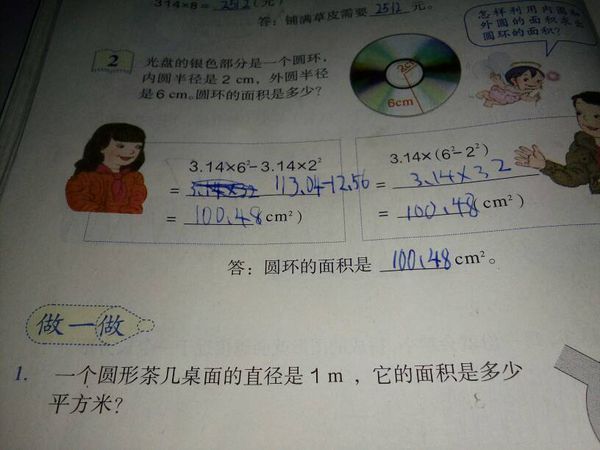 314×8= 2512 (元)
答：铺满草皮需要 2512 元。
怎样利用内圆和
外圆的面积求出
圆环的面积？
2 光盘的银色部分是一个圆环，
内圆半径是 2 cm，外圆半径
是 6 cm。圆环的面积是多少？
6cm
3.14×6²-3.14×2²
= 3.14×32 113.04-12.56
= 100.48 cm²)
3.14×(6²-2²)
= 3.14×32
= 100.48 cm²)
答：圆环的面积是 100.48 cm²。
做一做
1. 一个圆形茶几桌面的直径是 1 m，它的面积是多少
平方米？